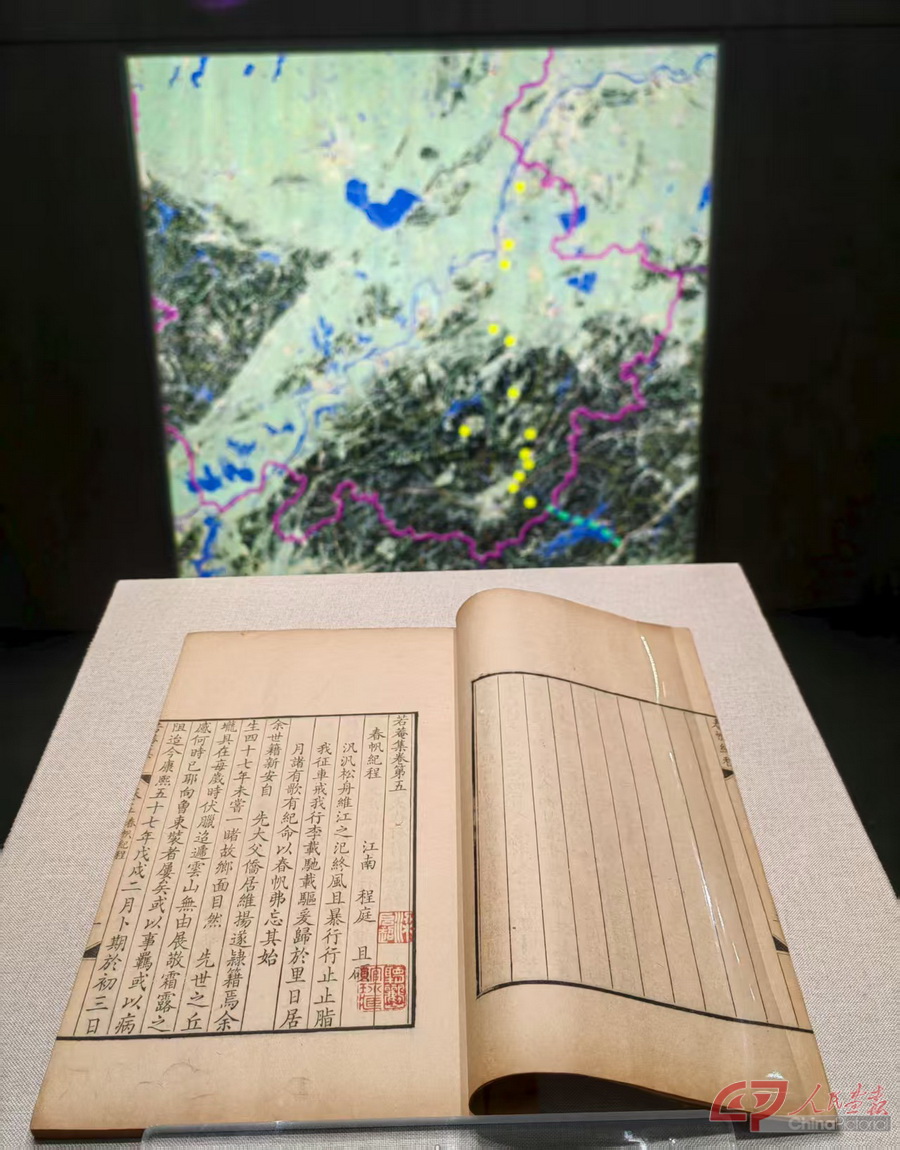 若菴集卷第五
春帆紀程
江南 程庭 且碩
汎汎松舟維江之汜終風且暴行行止止脂
我征車戒我行李載馳載驅爰歸於里日居
月諸有歌有紀命以春帆弗忘其始
余世籍新安自 先大父僑居維揚遂隸籍焉余
生四十七年未嘗一睹故鄉面目然 先世之丘
壠具在每歲時伏臘迢遞雲山無由展敬霜露之
感何時已耶向曾束裝者屢矣或以事羈或以病
阻迨今康熙五十七年戊戌二月卜期於初三日
春帆紀程
人民画报
ChinaPictorial